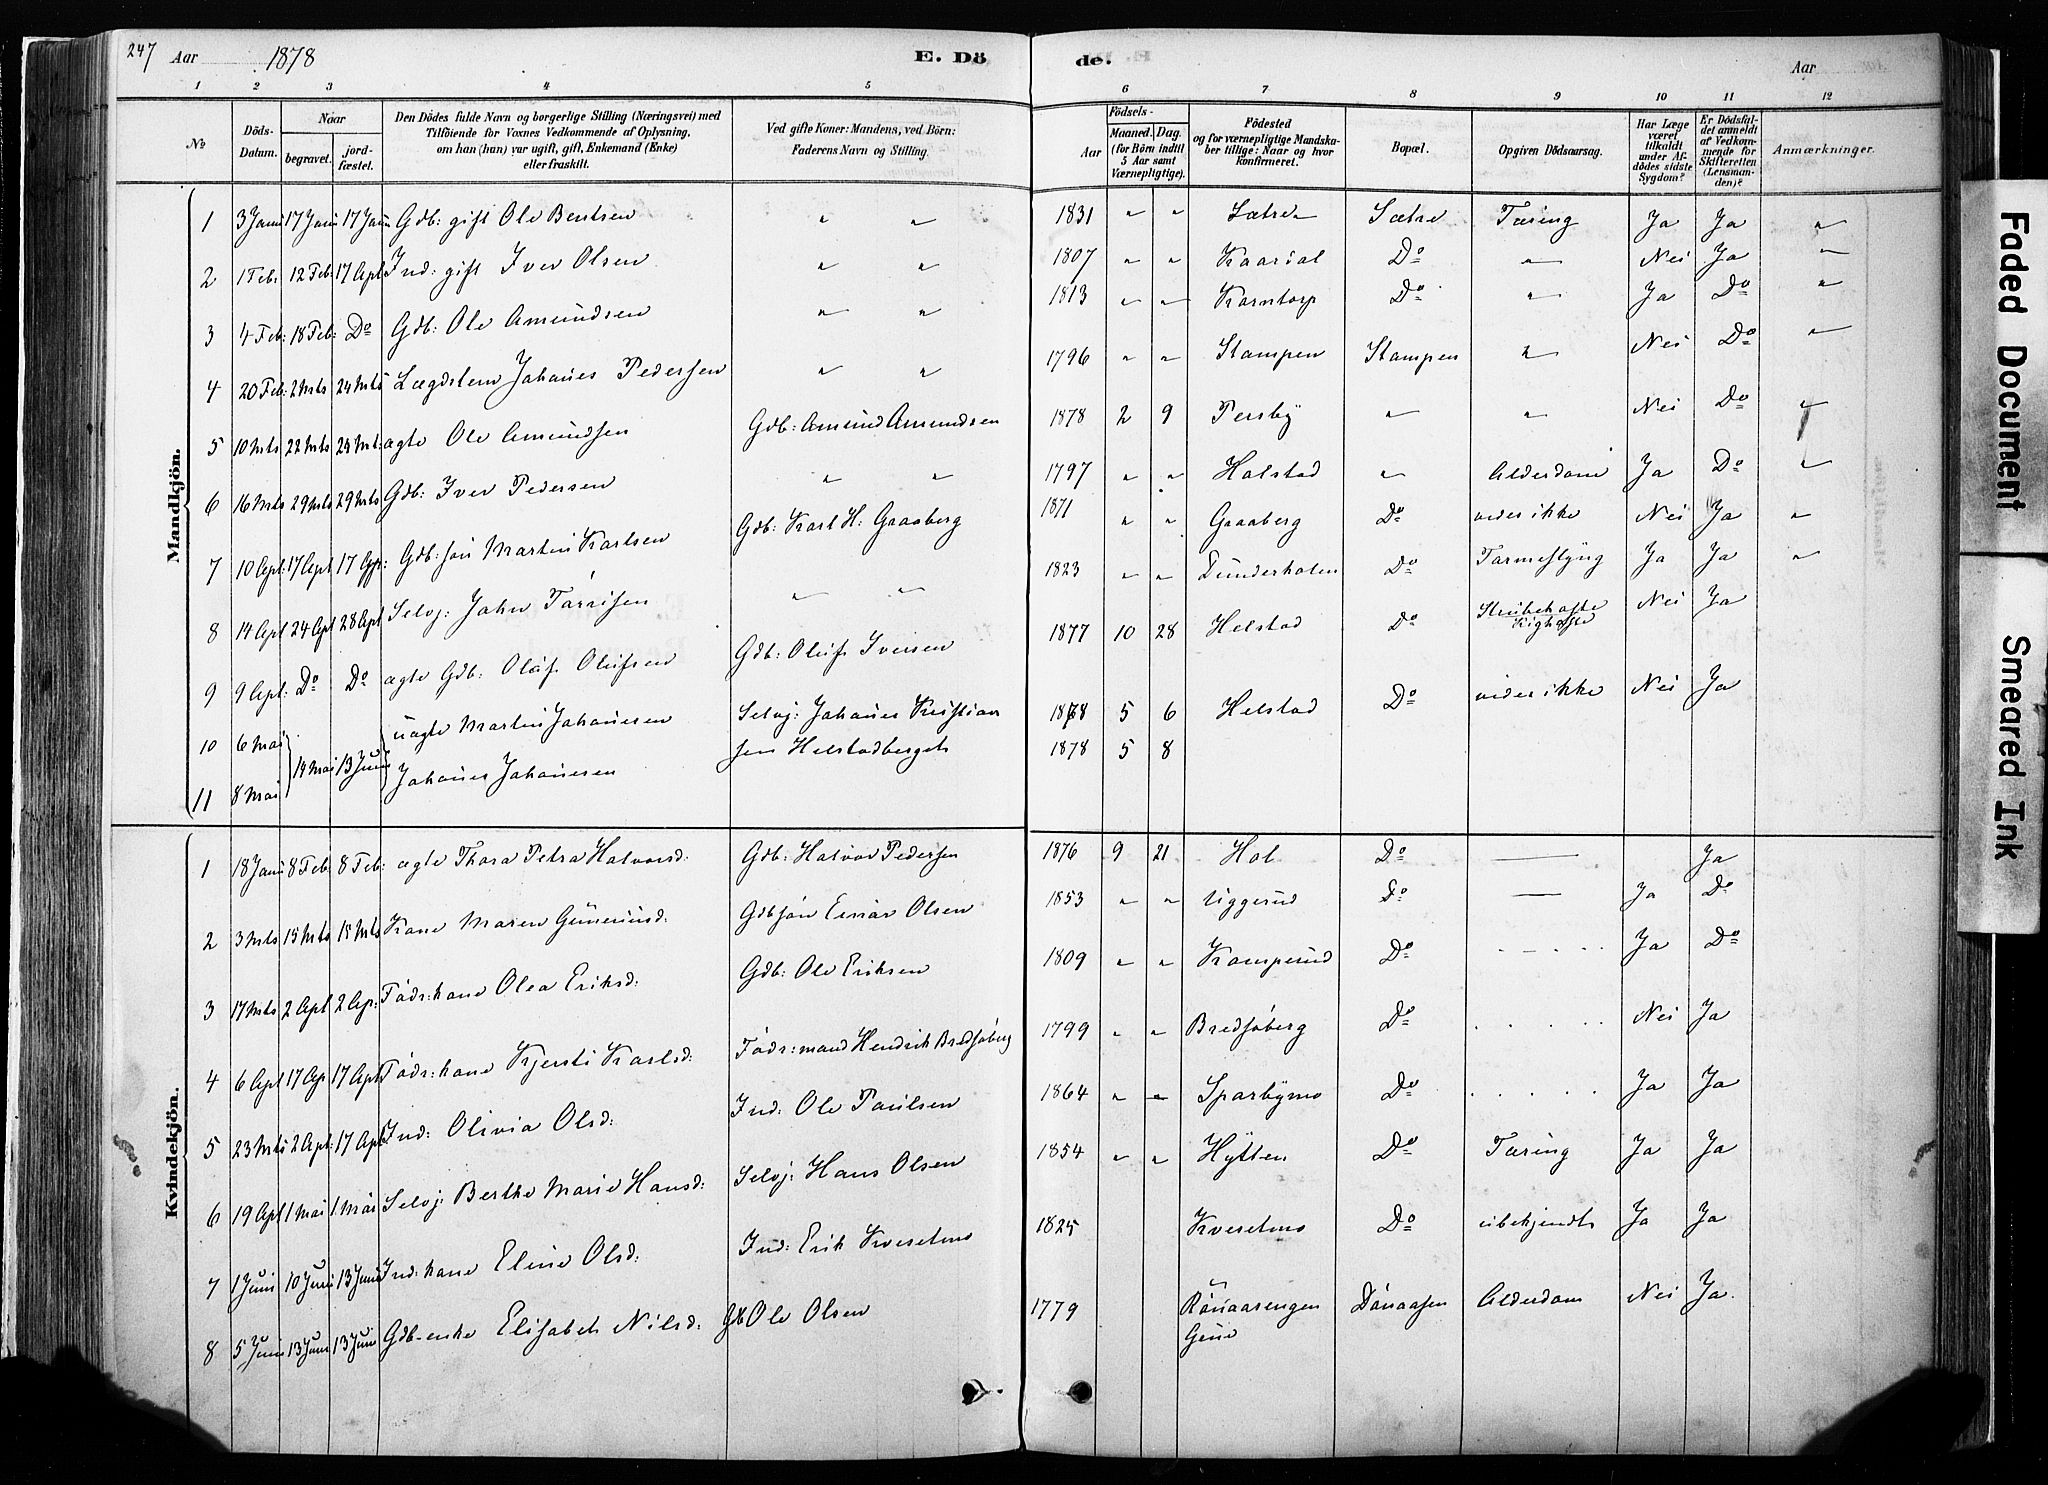 247 Aar 1878 E. Dö de. Aar
1 2 3 4 5 6 7 8 9 10 11 12
No
Döds-Datum.
Naar
begravet.
jord-fæstet.
Den Dödes fulde Navn og borgerlige Stilling (Næringsvei) med
Tilföiende for Voxnes Vedkommende af Oplysning,
om han (hun) var ugift, gift, Enkemand (Enke)
eller fraskilt.
Ved gifte Koner: Mandens, ved Börn:
Faderens Navn og Stilling.
Födsels-
Aar
Maaned. Dag.
(for Börn indtil
5 Aar samt
Værnepligtige).
Födested
og for værnepligtige Mandska-
ber tillige: Naar og hvor
konfirmeret.
Bopæl.
Opgiven Dödsaarsag.
Har Læge
været
tilkaldt
under Af-
dödes sidste
Sygdom?
Er Dödsfal-
det anmeldt
af Vedkom-
mende for
Skifteretten
(Lensman-
den)?
Anmærkninger.
Mandkjön.
1 3 Janu 17 Janu 17 Janu Gdb: gift Ole Bentsen " " 1831 " " Sætre Sætre Tæring Ja Ja "
2 1 Feb: 12 Feb: 17 Apl Ind: gift Iver Olsen " " 1807 " " Kaarial Do " Nei Ja "
3 4 Feb: 18 Feb: Do Gdb: Ole Amundsen " " 1813 " " Korntorp Do " Ja Do "
4 20 Feb: 2 Mts 24 Mts Lægdslem Johanes Pedersen " " 1796 " " Stampen Stampen " Nei Do "
5 10 Mts 22 Mts 24 Mt: ægte Ole Amundsen Gdb: Amund Amundsen 1878 2 9 Persby " " Nei Do "
6 16 Mts 29 Mts 29 Mts Gdb: Iver Pedersen " " 1797 " " Holstad " Alderdom Ja Do "
7 10 Apl: 17 Apl 17 Ap: Gdb: søn Martin Karlsen Gdb: Karl H: Graaberg 1871 " " Graaberg Do vides ikke Nei Ja "
8 14 Apl 24 Apl 28 Apl Selvj: John Torrisen " " 1823 " " Dunderholen Do Tarmeslyng Ja Ja "
9 9 Apl: Do Do ægte Gdb: Olaf Olufsen Gdb: Oluf Iversen 1877 10 28 Helstad Do Strubehoste Kighoste Nei Ja
10 6 Mai uægte Martin Johanesen Selvj: Johanes Kristian 1878 5 6 Helstad Do vides ikke Nei Ja
14 Mai 13 Juni
11 8 Mai Johanes Johanesen sen Helstadberget 1878 5 8
Kvindekjön.
1 18 Janu 8 Feb 8 Feb: ægte Thora Petra Halvorsd: Gdb: Halvor Pedersen 1876 9 21 Hol Do — Ja
2 3 Mts 15 Mts 15 Mts Kone Maren Gunerusd: Gdbsøn Einar Olsen 1853 " " Uggerud Do — Ja Do
3 17 Mts 2 Apl 2 Ap: Fødr: kone Olea Eriksd: Gdb: Ole Eriksen 1809 " " Kamperud Do Ja Do
4 6 Apl 17 Ap 17 Apl Fødr: kone Kjersti Karlsd: Fødr: mand Hendrik Bredsøberg 1799 " " Bredsøberg Do Nei Ja
5 23 Mts 2 Apl: 17 Apl Ind: Olivia Olsd: Ind: Ole Paulsen 1864 " " Sparbymo Do Ja Ja
6 19 Apl 1 Mai 1 Mai Selvj: Berthe Marie Hansd: Selvj: Hans Olsen 1854 " " Hytten Do Tæring Ja Ja
7 1 Juni 10 Juni 13 Juni Ind: kone Eline Olsd: Ind: Erik Kvesetmo 1825 Kvesetmo Do ubekjendt Ja Ja
8 5 Juni 13 Juni 13 Juni Gdb-enke Elisabet Nilsd: Gb Ole Olsen 1779 Rönaasengen Grue Dönaasen Alderdom Nei Ja.
Faded Document
Smeared Ink